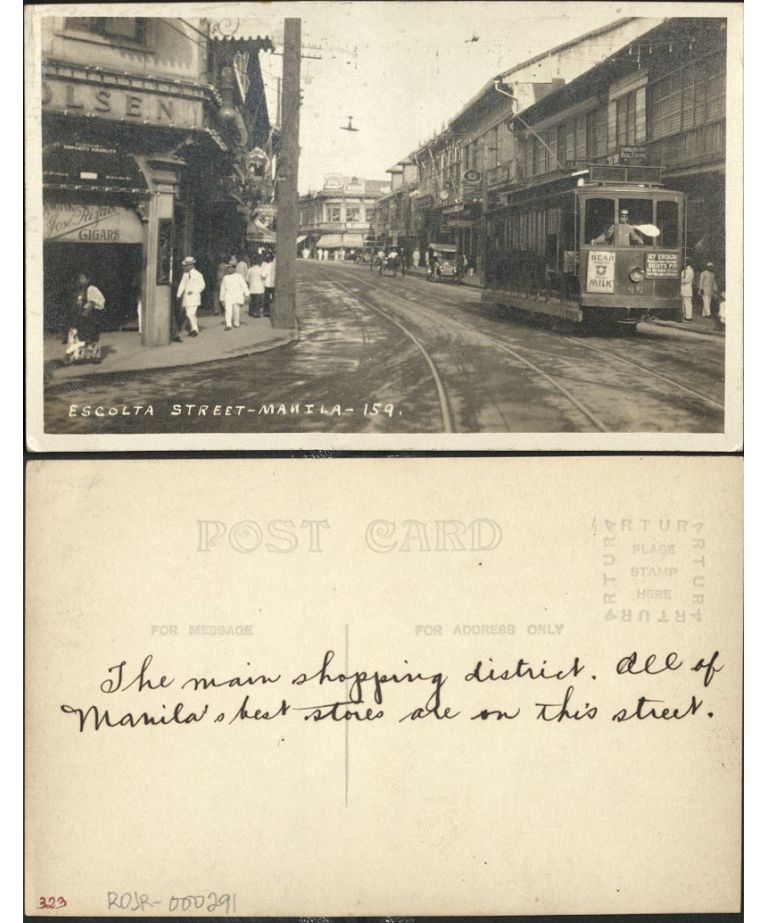 OLSEN
José Rizal
CIGARS
REAL ESTATE
BEAR
MILK
127 ESCOLTA
SHIRTS
ESCOLTA STREET-MANILA-159.
POST CARD
ARTURA
ARTURA
PLACE
STAMP
HERE
ARTURA
ARTURA
FOR MESSAGE
FOR ADDRESS ONLY
The main shopping district. All of
Manila's best stores are on this street.
323
ROJR-000291